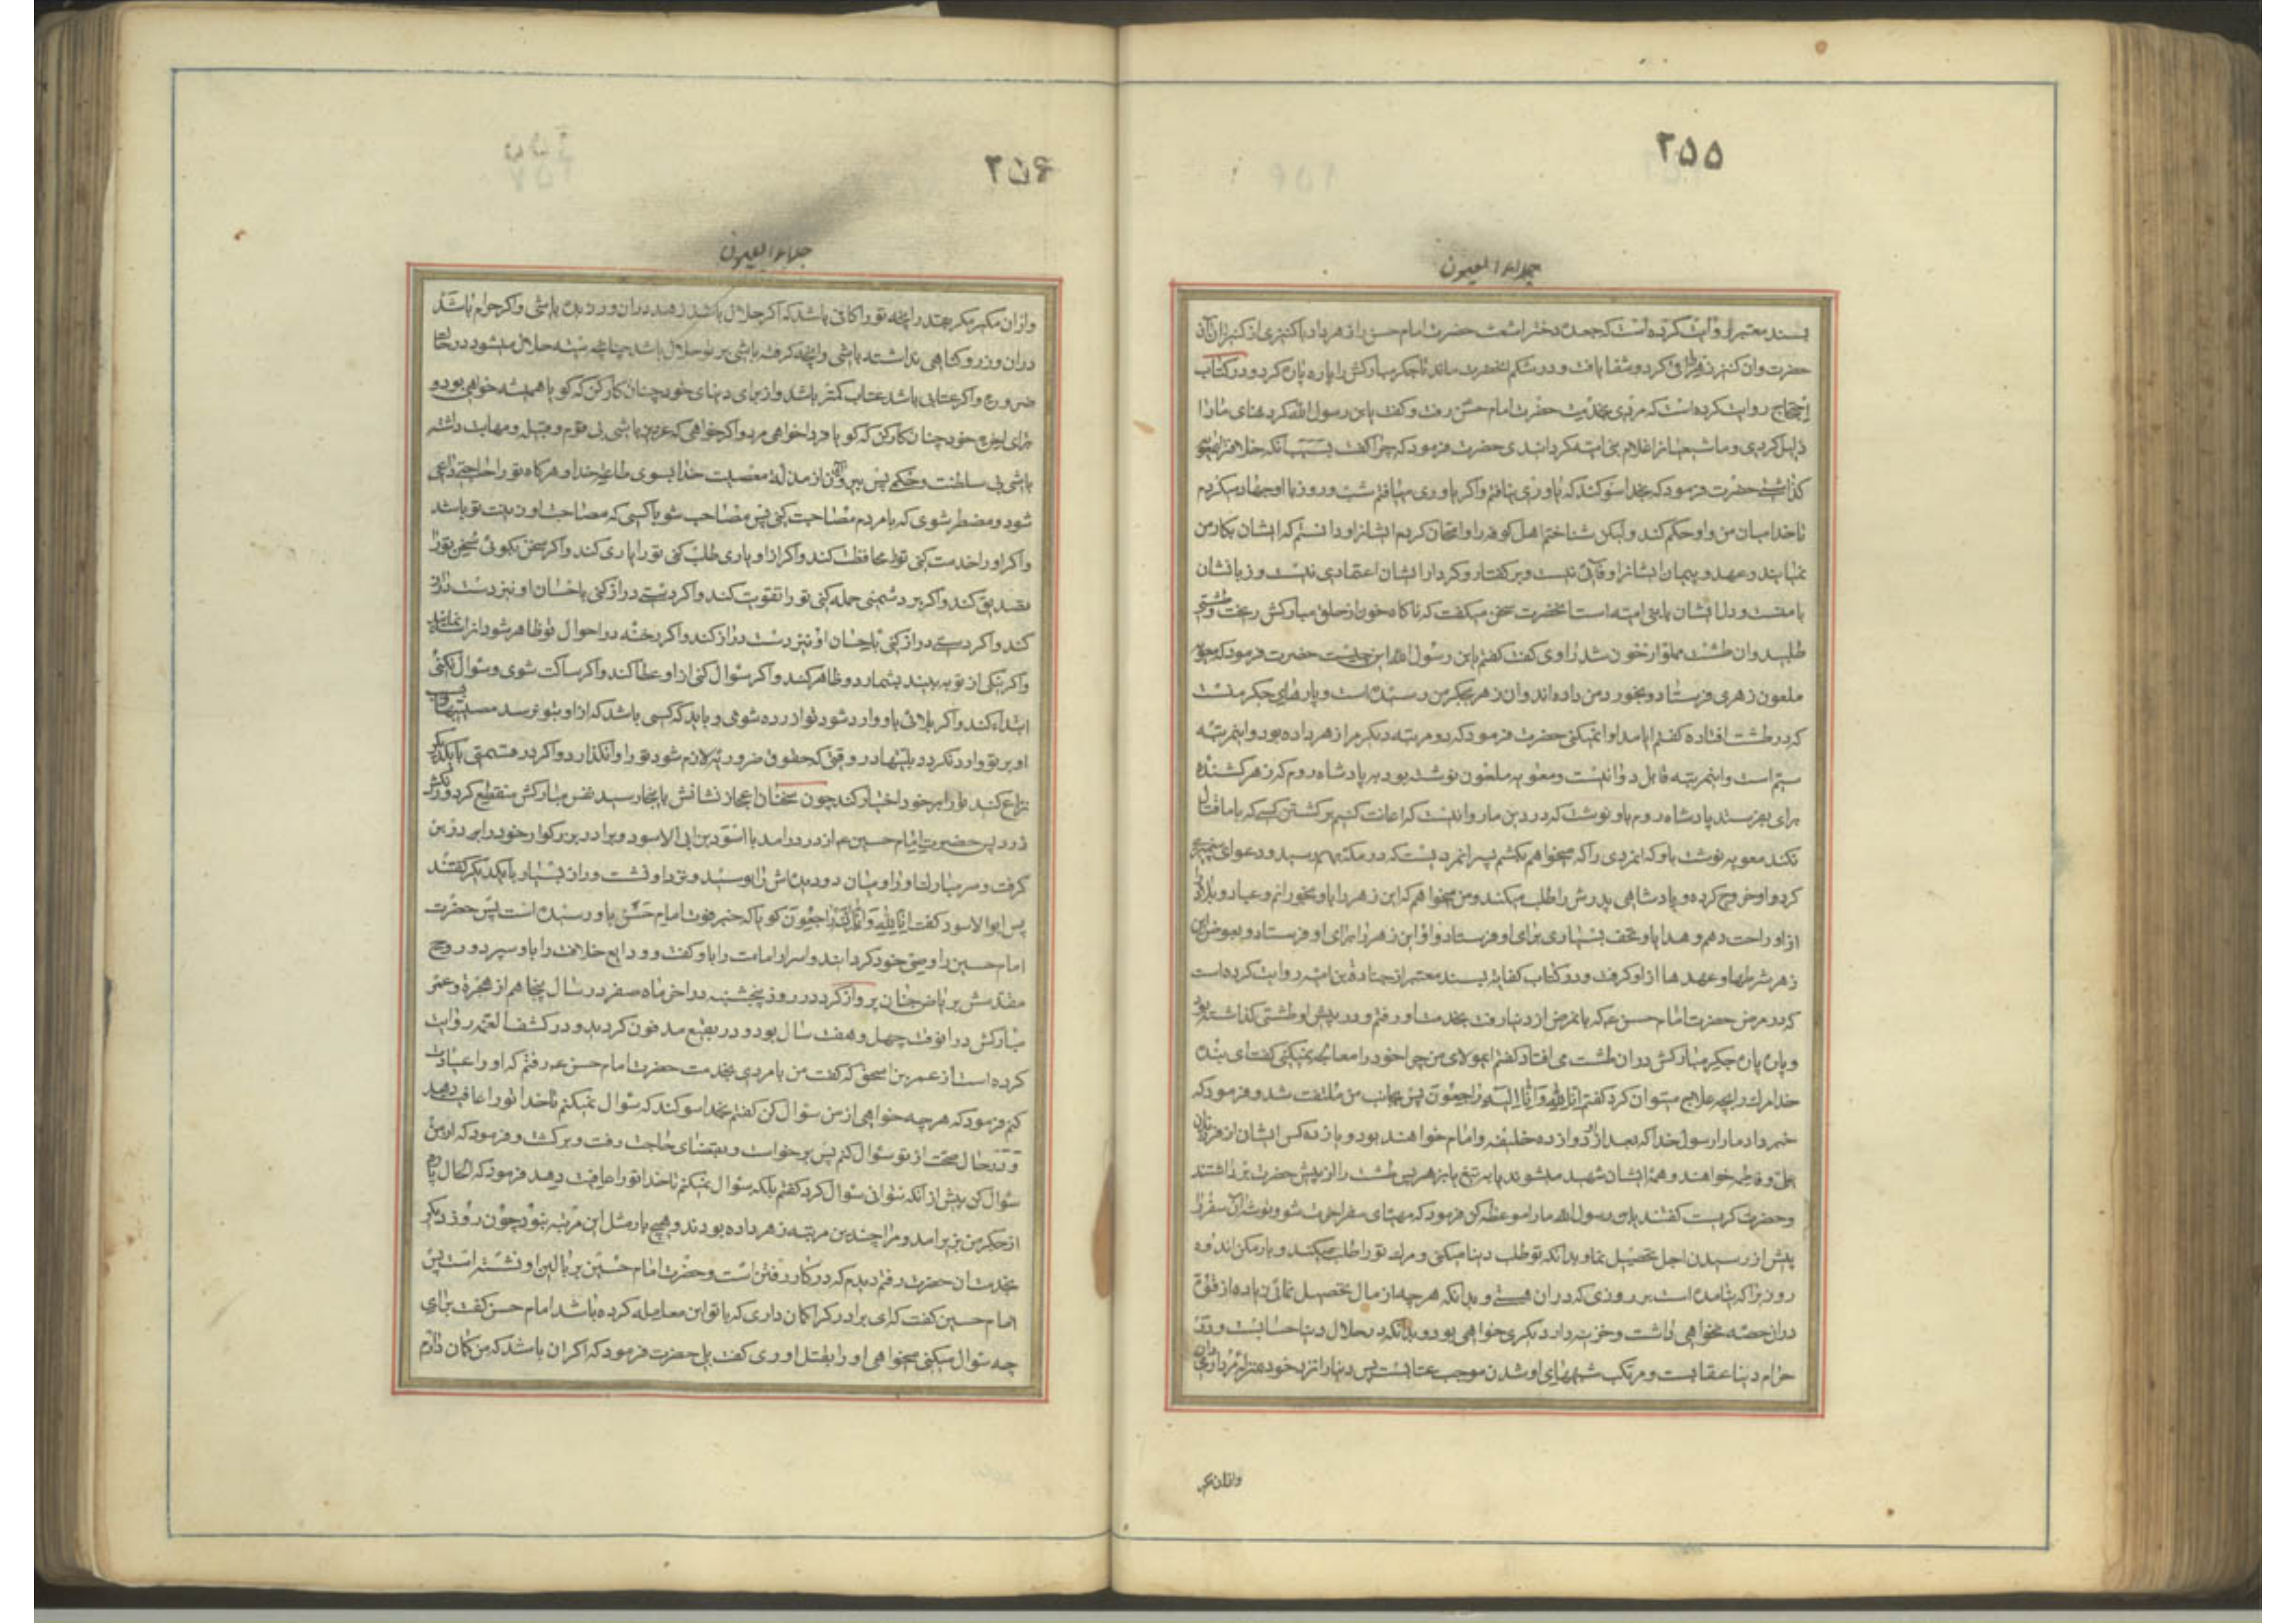 ۲۵۵
جلاء العیون
بسند معتبر روایت کرده است که جعده دختر اشعث حضرت امام حسن را زهر داد با کنیزی از کنیزان آن
حضرت و ان کنیز زهر را قی کرد و شفا یافت و در شکم آنحضرت ماند تا جکر مبارکش را پاره پاره کرد و در کتاب
احتجاج روایت کرده است که مردی بخدمت حضرت امام حسن رفت و کفت یابن رسول الله کردنهای ما را
ذلیل کردی و ما شیعیانرا غلام بنی امیه کردانیدی حضرت فرمود که چرا کفت بسبب آنکه خلافترا بمعویه
کذاشتی حضرت فرمود که بخدا سوکند که یاوری نیافتم و اکر یاوری میافتم شب و روز با او جهاد میکردم
تا خدا میان من و او حکم کند ولیکن شناختم اهل کوفه را و امتحان کردم ایشانرا و دانستم که ایشان بکار من
نمیایند و عهد و پیمان ایشانرا وفائی نیست و بر کفتار و کردار ایشان اعتمادی نیست و زبانشان
با منست و دل ایشان با بنی امیه است آنحضرت سخن میکفت که ناکاه خون از حلق مبارکش ریخت و طشتی
طلبید و ان طشت مملو از خون شد راوی کفت کفتم یابن رسول الله این چیست حضرت فرمود که معویه
ملعون زهری فرستاد و بخورد من داده‌اند و ان زهر بجکر من رسیده است و پارهای جکر منست
که در طشت افتاده کفتم ایا مداوا نمیکنی حضرت فرمود که دو مرتبه دیکر مرا زهر داده بود و اینمرتبه
سیم است و اینمرتبه قابل دوا نیست و معویه ملعون نوشته بود بپادشاه روم که زهر کشنده
برای او بفرستد پادشاه روم باو نوشت که در دین ما روا نیست که اعانت کنیم بر کشتن کسیکه با ما قتال
نکند معویه نوشت باو که انمردی را که میخواهم بکشم پسر انمردیست که در مکه بهم رسید و دعوای پیغمبری
کرد و او خروج کرده و پادشاهی پدرش را طلب میکند و من میخواهم که این زهر را باو بخورانم و عباد و بلاد را
از او راحت دهم و هدایا و تحف بسیاری برای او فرستاد و او این زهر را برای او فرستاد و بعوض این
زهر شرطها و عهدها از او کرفت و در کتاب کفایه بسند معتبر از جناده بن امیه روایت کرده است
که در مرض حضرت امام حسن ع که بانمرض از دنیا رفت بخدمت او رفتم و در پیش او طشتی کذاشته بود
و پاره پاره جکر مبارکش دران طشت می افتاد کفتم ایمولای من چرا خود را معالجه نمیکنی کفت ای بنده
خدا مرک را بچه علاج میتوان کرد کفتم انا لله و انا الیه راجعون پس بجانب من ملتفت شد و فرمود که
خبر داد ما را رسول خدا که بعد از او دوازده خلیفه و امام خواهند بود و یازده کس ایشان از فرزندان
علی و فاطمه خواهند و همهٔ ایشان شهید میشوند یا به تیغ یا بزهر پس طشت را از پیش حضرت برداشتند
و حضرت کریست کفتند یابن رسول الله ما را موعظه کن فرمود که مهیای سفر اخرت شو و توشهٔ ان سفر را
پیش از رسیدن اجل تحصیل نما و بدانکه تو طلب دنیا میکنی و مرک تو را طلب میکند و بار مکن اندوه
روزیرا که نیامده است بر روزی که دران هستی و بدانکه هر چه از مال تحصیل نمائی زیاده از قوت
دران حصه نخواهی داشت و خزینه‌دار دیکری خواهی بود و بدانکه در حلال دنیا حسابست و در
حرام دنیا عقابست و مرتکب شبهه‌های او شدن موجب عتابست پس دنیا را نزد خود بمنزلهٔ مرداری دان
وازان مکیر
۲۵۶
جلاء العیون
وازان مکیر مکر بقدر انچه تو را کافی باشد که اکر حلال باشد زهد دران ورزیده باشی و اکر حرام باشد
دران وزر و کناهی نداشته باشی و انچه کرفته باشی بر تو حلال باشد چنانچه میته حلال میشود در حال
ضرورت و اکر عتابی باشد عتاب کمتر باشد و از برای دنیای خود چنان کار کن که کویا همیشه خواهی بود و
برای اخرت خود چنان کار کن که کویا فردا خواهی مرد و اکر خواهی که عزیز باشی بی قوم و قبیله و مهابت داشته
باشی بی سلطنت و حکمی پس بیرون ای از مذلت معصیت خدا بسوی طاعت خدا و هرکاه تو را حاجتی داعی
شود و مضطر شوی که با مردم مصاحبت کنی پس مصاحب شو با کسی که مصاحبت او زینت تو باشد
و اکر او را خدمت کنی تو را محافظت کند و اکر از او یاری طلب کنی تو را یاری کند و اکر سخن بکوئی سخن تو را
تصدیق کند و اکر بر دشمنی حمله کنی تو را تقویت کند و اکر دستی دراز کنی باحسان او نیز دست دراز
کند و اکر دستی دراز کنی باحسان او نیز دست دراز کند و اکر رخنه در احوال تو ظاهر شود انرا سد نماید
و اکر نیکی از تو به بیند بشمارد و ظاهر کند و اکر سؤال کنی از او عطا کند و اکر ساکت شوی و سؤال نکنی
ابتداء کند و اکر بلائی باو وارد شود تو ازرده شوی و باید که کسی باشد که از او بتو نرسد مصیبتها و بسبب
او بر تو وارد نکردد بلیتها در وقتی که حقوق ضروریه لازم شود تو را وانکذارد و اکر در قسمتی با یکدیکر
نزاع کنید تو را بر خود اختیار کند چون سخنان اعجاز نشانش باینجا رسید نفس مبارکش منقطع کردید و رنکش
زرد پس حضرت امام حسین ع از در درامد با اسود بن ابی الاسود و برادر بزرکوار خود را در بر
کرفت و سر مبارک او را و میان دو دیده‌اش را بوسید و نزد او نشست و راز بسیار با یکدیکر کفتند
پس ابوالاسود کفت انا لله و انا الیه راجعون کویا که خبر فوت امام حسن باو رسیده است پس حضرت
امام حسین را وصی خود کردانید و اسرار امامت را باو کفت و ودایع خلافت را باو سپرد و روح
مقدسش بریاض جنان پرواز کرد در روز پنجشنبه در اخر ماه صفر در سال پنجاهم از هجرة و عمر
مبارکش درانوقت چهل و هفت سال بود و در بقیع مدفون کردید و در کشف الغمه روایت
کرده است از عمر بن اسحق که کفت من با مردی بخدمت حضرت امام حسن ع رفتم که او را عیادت
کنم فرمود که هر چه خواهی از من سؤال کن کفتم بخدا سوکند که سؤال نمیکنم تا خدا تو را عافیت دهد
و در حال صحت از تو سؤال کنم پس برخواست و بقضای حاجت رفت و برکشت و فرمود که از من
سؤال کن پیش از انکه نتوانی سؤال کرد کفتم بلکه سؤال نمیکنم تا خدا تو را عافیت دهد فرمود که الحال پارهٔ
از جکر من بزیر امد و مرا چندین مرتبه زهر داده بودند و هیچ بار مثل این مرتبه نبود چون روز دیکر
بخدمت ان حضرت رفتم دیدم که در کار رفتن است و حضرت امام حسین بر بالین او نشسته است پس
امام حسین کفت که ای برادر کرا کمان داری که با تو این معامله کرده باشد امام حسن کفت برای
چه سؤال میکنی میخواهی او را بقتل اوری کفت بلی حضرت فرمود که اکر ان باشد که من کمان دارم